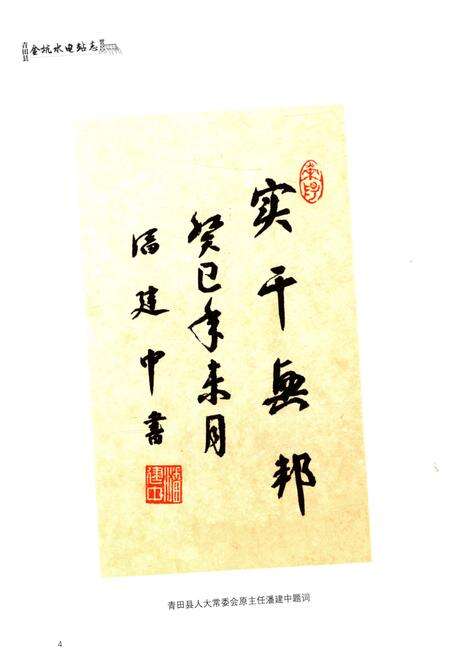 青田县
金坑水电站志
实干兴邦
癸巳年未月
潘建中书
青田县人大常委会原主任潘建中题词
4